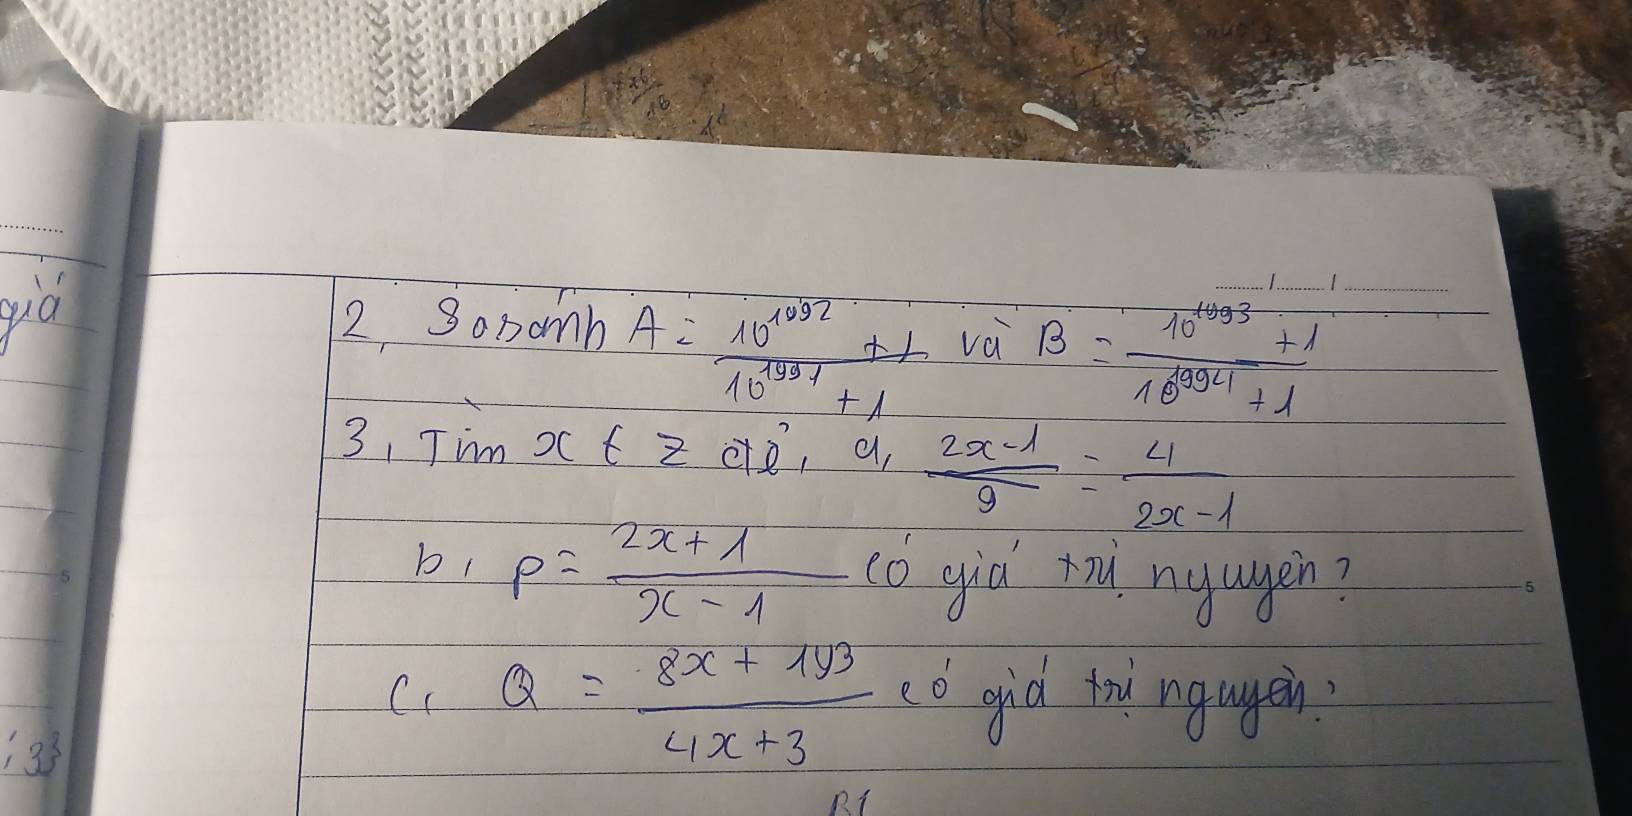 giá
: 33
2, So sánh A = \frac{10^{1992} + 1}{10^{1991} + 1} và B = \frac{10^{1993} + 1}{10^{1994} + 1}
3, Tìm x ∈ Z để, a, \frac{2x - 1}{9} = \frac{4}{2x - 1}
b, P = \frac{2x + 1}{x - 1} có giá trị nguyên?
c, Q = \frac{8x + 193}{4x + 3} có giá trị nguyên?
5
5